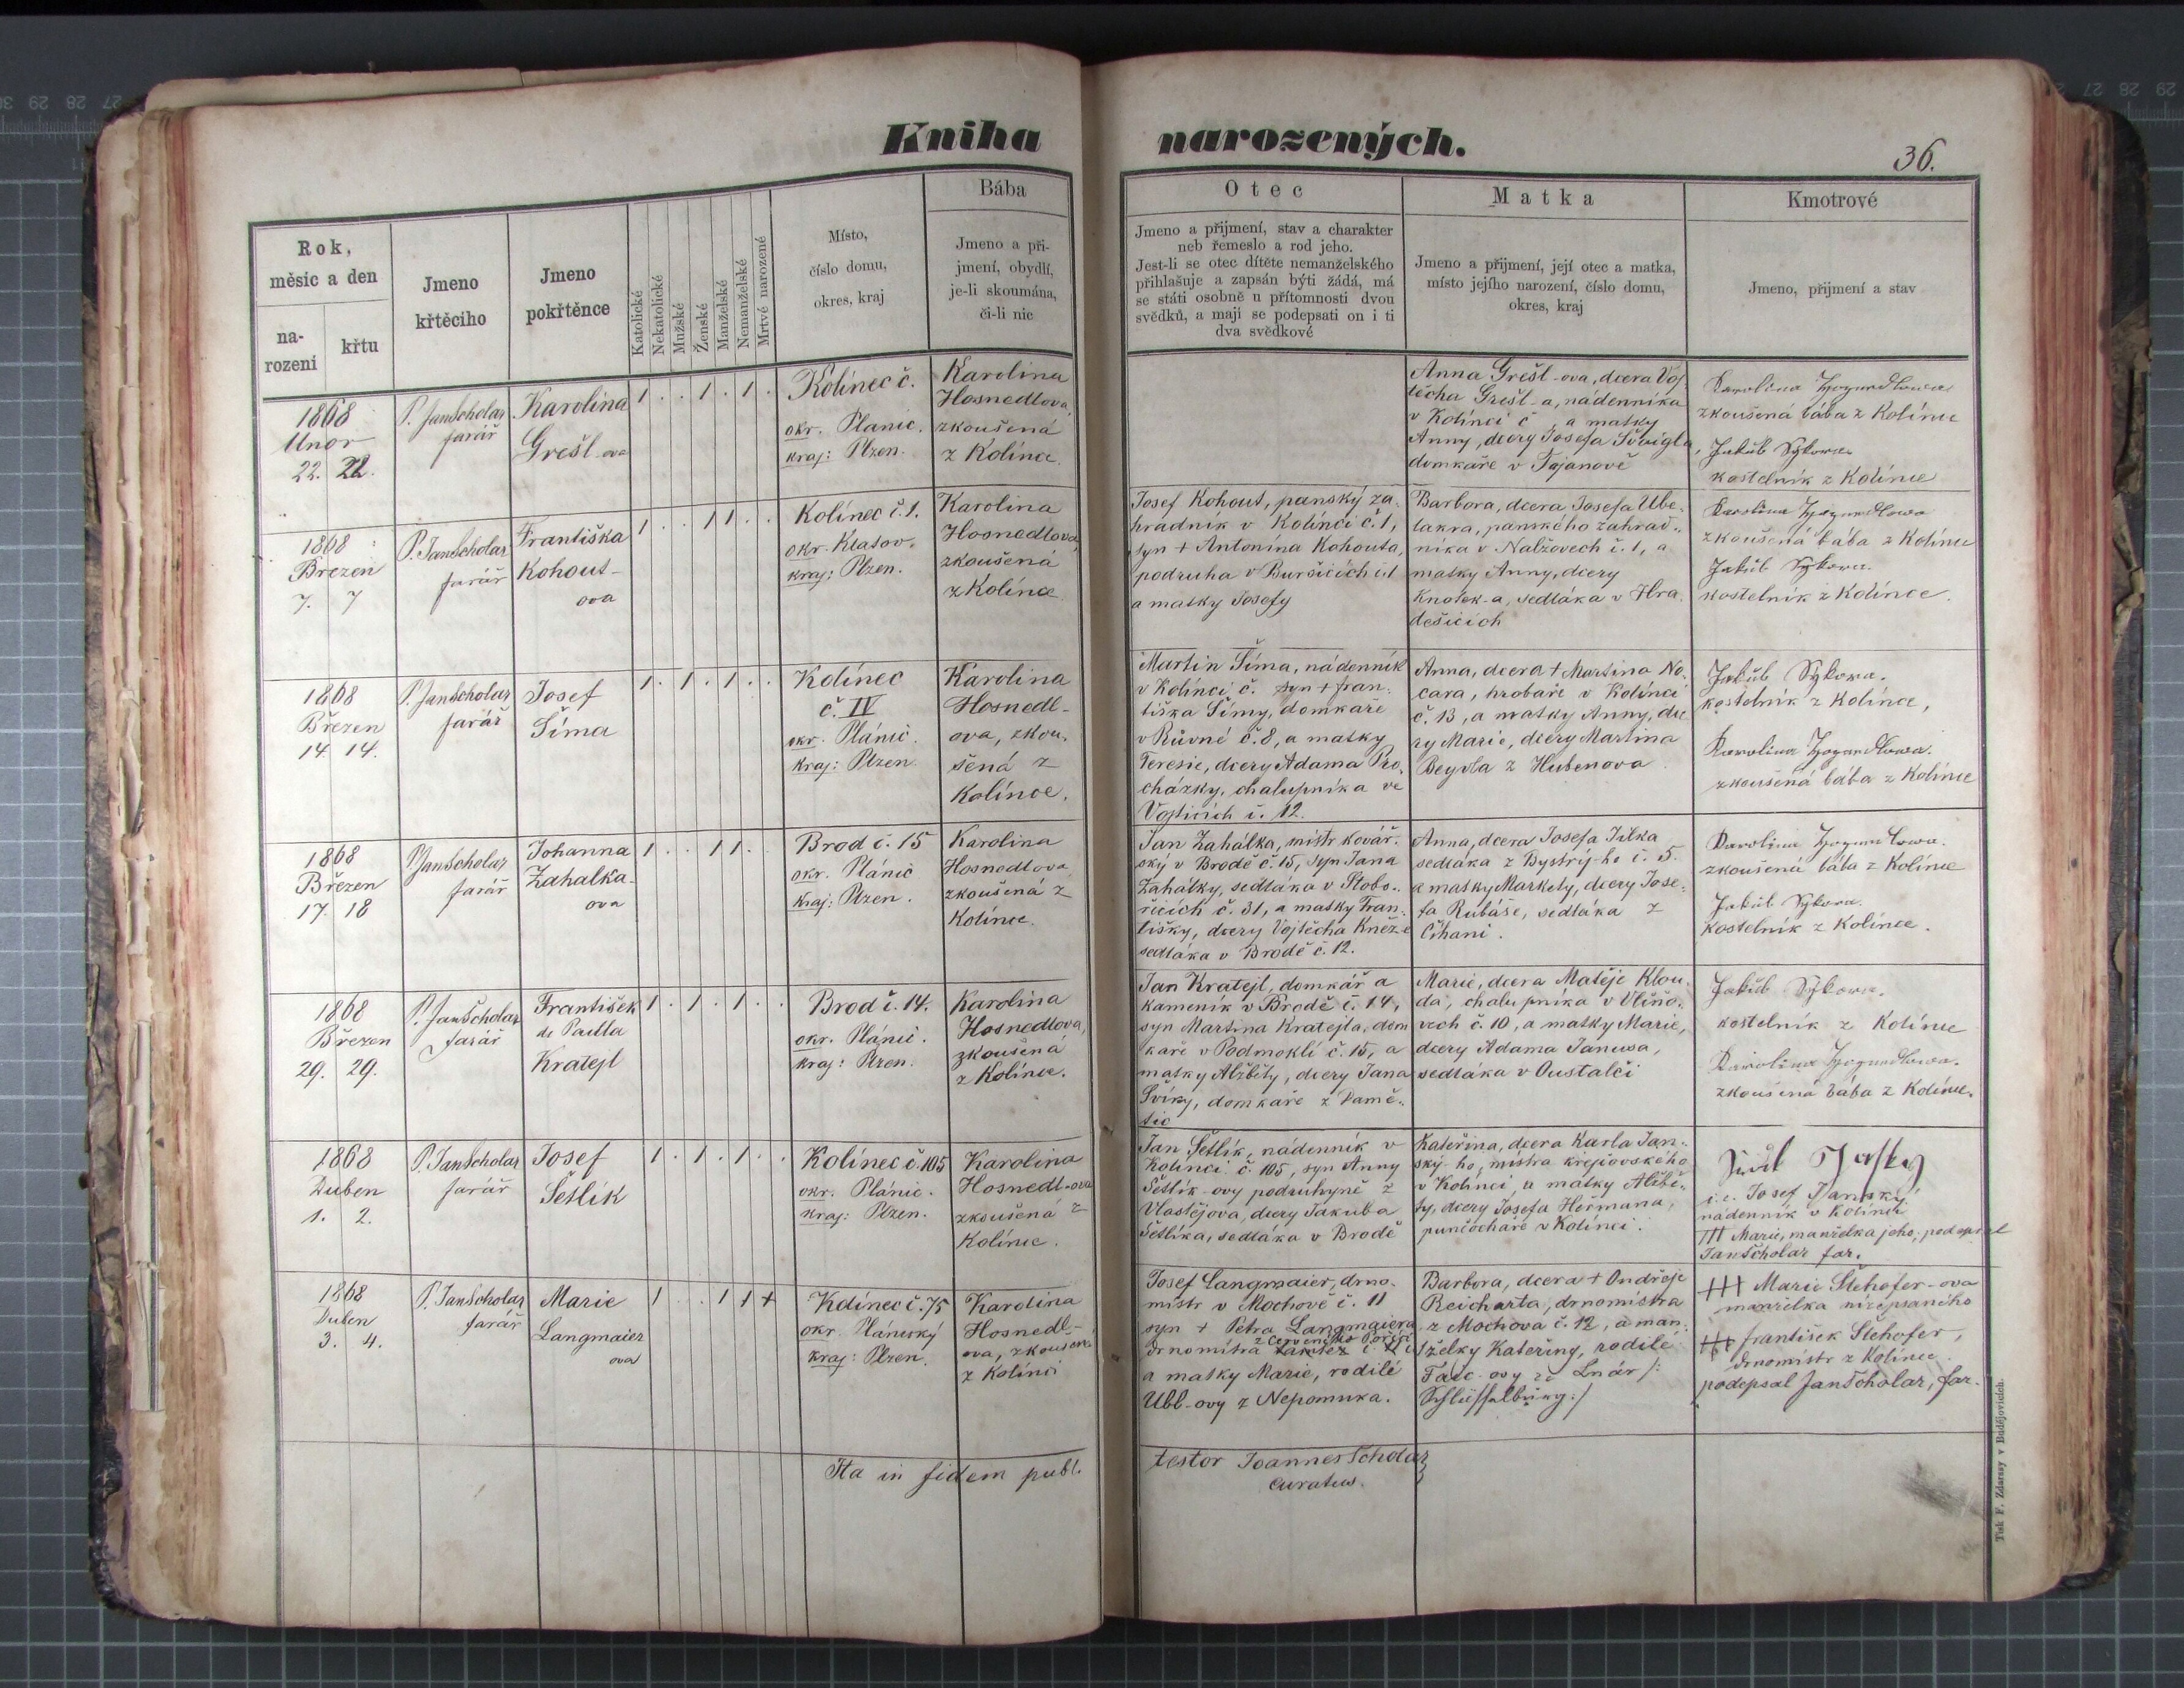 Kniha narozených.
36.
Rok,
měsíc a den
na-
rození
křtu
Jmeno
křtěcího
Jmeno
pokřtěnce
Katolické
Nekatolické
Mužské
Ženské
Manželské
Nemanželské
Mrtvé narozené
Místo,
číslo domu,
okres, kraj
Bába
Jmeno a při-
jmení, obydlí,
je-li skoumána,
či-li nic
Otec
Jmeno a přijmení, stav a charakter
neb řemeslo a rod jeho.
Jest-li se otec dítěte nemanželského
přihlašuje a zapsán býti žádá, má
se státi osobně u přítomnosti dvou
svědků, a mají se podepsati on i ti
dva svědkové
Matka
Jmeno a přijmení, její otec a matka,
místo jejího narození, číslo domu,
okres, kraj
Kmotrové
Jmeno, přijmení a stav
1868
Unor
22. 22.
P. Jan Scholar
farář
Karolina
Grešl-ova
1 . . 1 . 1 .
Kolinec č.
okr. Planic.
kraj: Plzen.
Karolina
Hosnedlova,
zkoušená
z Kolince.
Anna Grešl-ova, dcera Voj-
těcha Grešl-a, nádenníka
v Kolinci č , a matky
Anny, dcery Josefa Švigla,
domkaře v Tajanově
zkoušená bába z Kolince
Jakub Sykora
kostelník z Kolince
1868
Březen
7. 7
P. Jan Scholar
farář
Františka
Kohout-
ova
1 . . 1 1 . .
Kolinec č. 1.
okr. Klatov.
kraj: Plzen.
Karolina
Hosnedlova,
zkoušená
z Kolince
Josef Kohout, panský za-
hradník v Kolinci č. 1,
syn + Antonína Kohouta,
podruha v Buršicích č. 1
a matky Josefy
Barbora, dcera Josefa Ube-
lakra, panského zahrad-
níka v Nalžovech č. 1, a
matky Anny, dcery
Knotek-a, sedláka v Hra-
dešicích
zkoušená bába z Kolince
Jakub Sykora.
kostelník z Kolince.
1868
Březen
14. 14.
P. Jan Scholar
farář
Josef
Šíma
1 . 1 . 1 . .
Kolínec
č. IV
okr. Plánic.
kraj: Plzen
Karolina
Hosnedl-
ova, zkou-
šená z
Kolínce.
Martin Šíma, nádenník
v Kolínci č. syn + Fran-
tiška Šímy, domkaře
v Růvné č. 8, a matky
Teresie, dcery Adama Pro-
cházky, chalupníka ve
Vojticích č. 12.
Anna, dcera + Martina No-
cara, hrobaře v Kolínci
č. 13, a matky Anny, dce
ry Marie, dcery Martina
Beyvla z Hubenova.
Jakub Sykora.
kostelník z Kolince,
zkoušená bába z Kolince
1868
Březen
17. 18
P. Jan Scholar
farář
Johanna
Zahalka-
ova
1 . . 1 1 . .
Brod č. 15
okr. Plánic
kraj: Plzen.
Karolina
Hosnedlova
zkoušená z
Kolínce.
Jan Zahálka, mistr kovář-
ský v Brodě č. 15, syn Jana
Zahálky, sedláka v Stobo-
řicích č. 31, a matky Fran-
tišky, dcery Vojtěcha Kněze
sedláka v Brodě č. 12.
Anna, dcera Josefa Jílka
sedláka z Bystrý-ho č. 5.
a matky Markety, dcery Jose-
fa Rubáše, sedláka z
Číhani.
zkoušená bába z Kolince
Jakub Sykora.
kostelník z Kolince.
1868
Březen
29. 29.
P. Jan Scholar
farář
František
de Paulla
Kratejl
1 . 1 . 1 . .
Brod č. 14.
okr. Plánic.
kraj: Plzen.
Karolina
Hosnedlova,
zkoušená
z Kolínce.
Jan Kratejl, domkář a
kameník v Brodě č. 14,
syn Martina Kratejla, dom
kaře v Podmoklí č. 15, a
matky Alžběty, dcery Jana
Šviky, domkaře z Damě-
tic
Marie, dcera Matěje Klou-
da, chalupníka v Vlčňo-
vech č. 10, a matky Marie,
dcery Adama Janusa,
sedláka v Oustalči
Jakub Sykora.
kostelník z Kolínce
zkoušená bába z Kolince.
1868
Duben
1. 2.
P. Jan Scholar
farář
Josef
Šetlík
1 . 1 . 1 . .
Kolínec č. 105
okr. Plánic.
kraj: Plzen.
Karolina
Hosnedl-ova
zkoušena z
Kolínce.
Jan Šetlík, nádenník v
Kolínci č. 105, syn Anny
Šetlík-ovy podruhyně z
Vlastějova, dcery Jakuba
Šetlíka, sedláka v Brodě
Kateřina, dcera Karla Jan-
ský-ho, mistra krejčovského
v Kolínci, a matky Alžbě-
ty, dcery Josefa Heřmana,
punčocháře v Kolínci.
i. e. Josef Janský,
nádenník v Kolínci
+++ Marie, manželka jeho, podepsal
Jan Scholar far.
1868
Duben
3. 4.
P. Jan Scholar
farář
Marie
Langmaier
ova
1 . . 1 1 +
Kolínec č. 75
okr. Plánický
kraj: Plzen.
Karolina
Hosnedl-
ova, zkoušená
z Kolinci
Josef Langmaier, drno-
mistr v Mochově č. 11
syn + Petra Langmaiera
z Červeného Poříčí
drnomitra
a matky Marie, rodilé
Ubl-ovy z Nepomuka.
Barbora, dcera + Ondřeje
Reicharta, drnomistra
z Mochova č. 12, a man-
želky Kateřiny, rodilé
Falc-ovy ze Lnář /:
Schlüsselburg :/
+++ Marie Štehofer-ova
manželka nížepsaného
+++ František Štehofer,
drnomistr z Kolince.
podepsal Jan Scholar, far.
Ita in fidem publ. testor Joannes Scholar
curatus.
Tisk F. Zdarssy v Budějovicích.